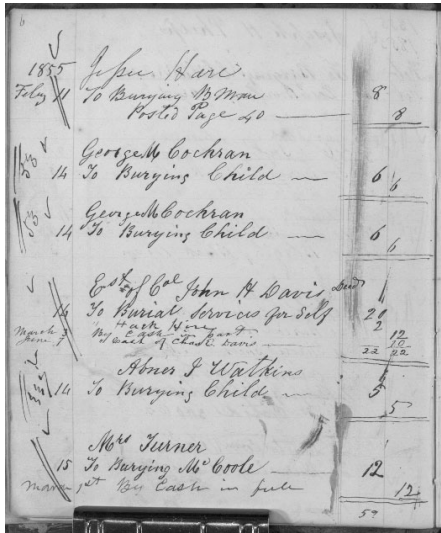 6
1855 Jesse Hare
Feby 11 To Burying B Man 8
Posted Page 40 8
George M Cochran
53 14 To Burying Child 6 6
George M Cochran
53 14 To Burying Child 6 6
Est of Col John H Davis Decd
14 To Burial Services for Self 20
Hack Hire 2
March 3 By Cash in part 12
June 7 Cash of Chas Davis 10
22 22
Abner J Watkins
14 To Burying Child 5 5
Mrs Turner
15 To Burying Mc Coole 12
By Cash in full 12
59